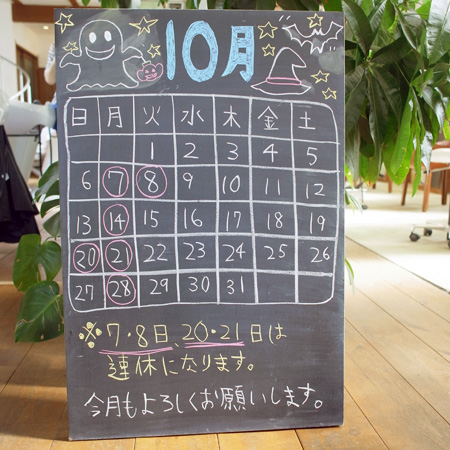 10月
日 月 火 水 木 金 土
1 2 3 4 5
6 7 8 9 10 11 12
13 14 15 16 17 18 19
20 21 22 23 24 25 26
27 28 29 30 31
※7・8日、20・21日は
連休になります。
今月もよろしくお願いします。